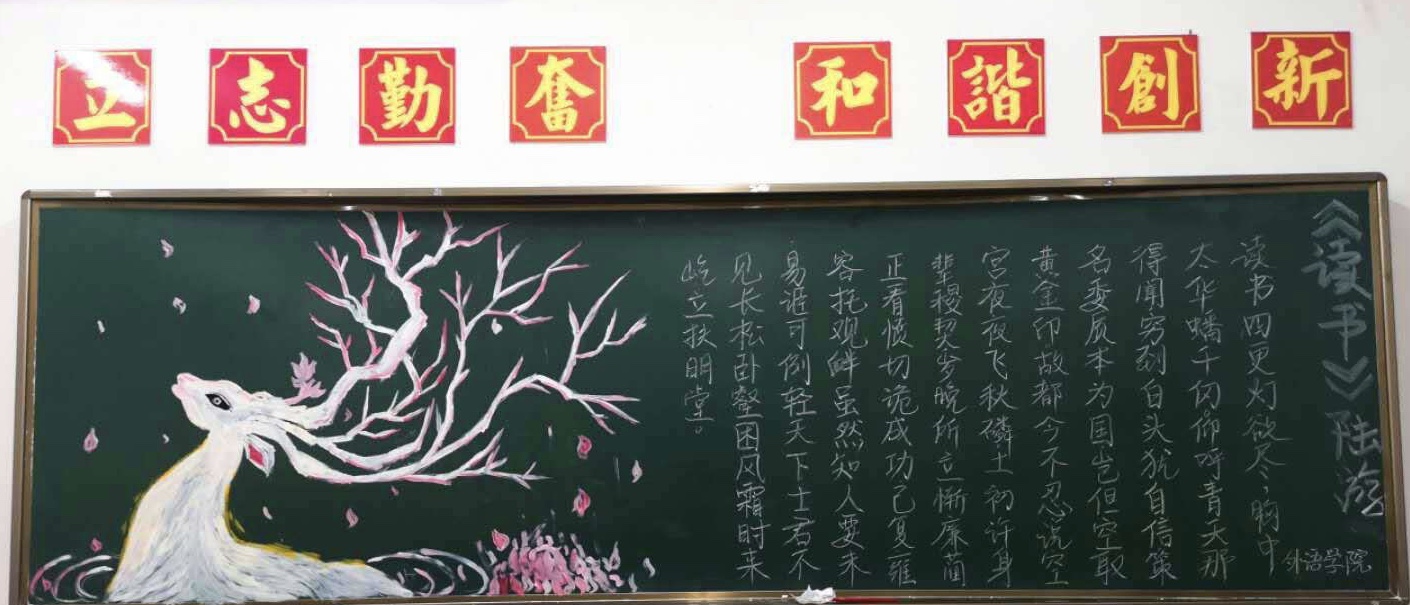 立志勤奮 和諧創新
《读书》陆游
读书四更灯欲尽,胸中
太华蟠千仞仰呼青天那
得闻穷到白头犹自信策
名委质本为国岂但空取
黄金印故都今不忍说空
宫夜夜飞秋磷士初许身
辈稷契岁晚所立惭廉蔺
正看愤切诡成功已复雍
容托观衅虽然知人要未
易讵可例轻天下士君不
见长松卧壑困风霜时来
屹立扶明堂。
外语学院